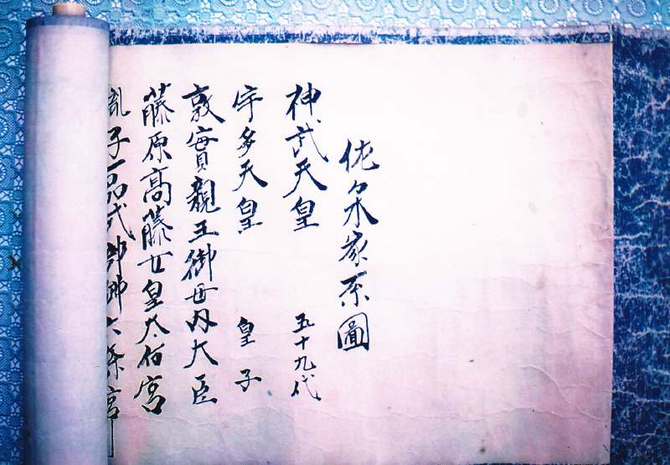 佐々木家系圖
神武天皇 五十九代
宇多天皇 皇子
敦實親王御母内大臣
藤原高藤女皇太后宮
胤子一品式部卿六条宮